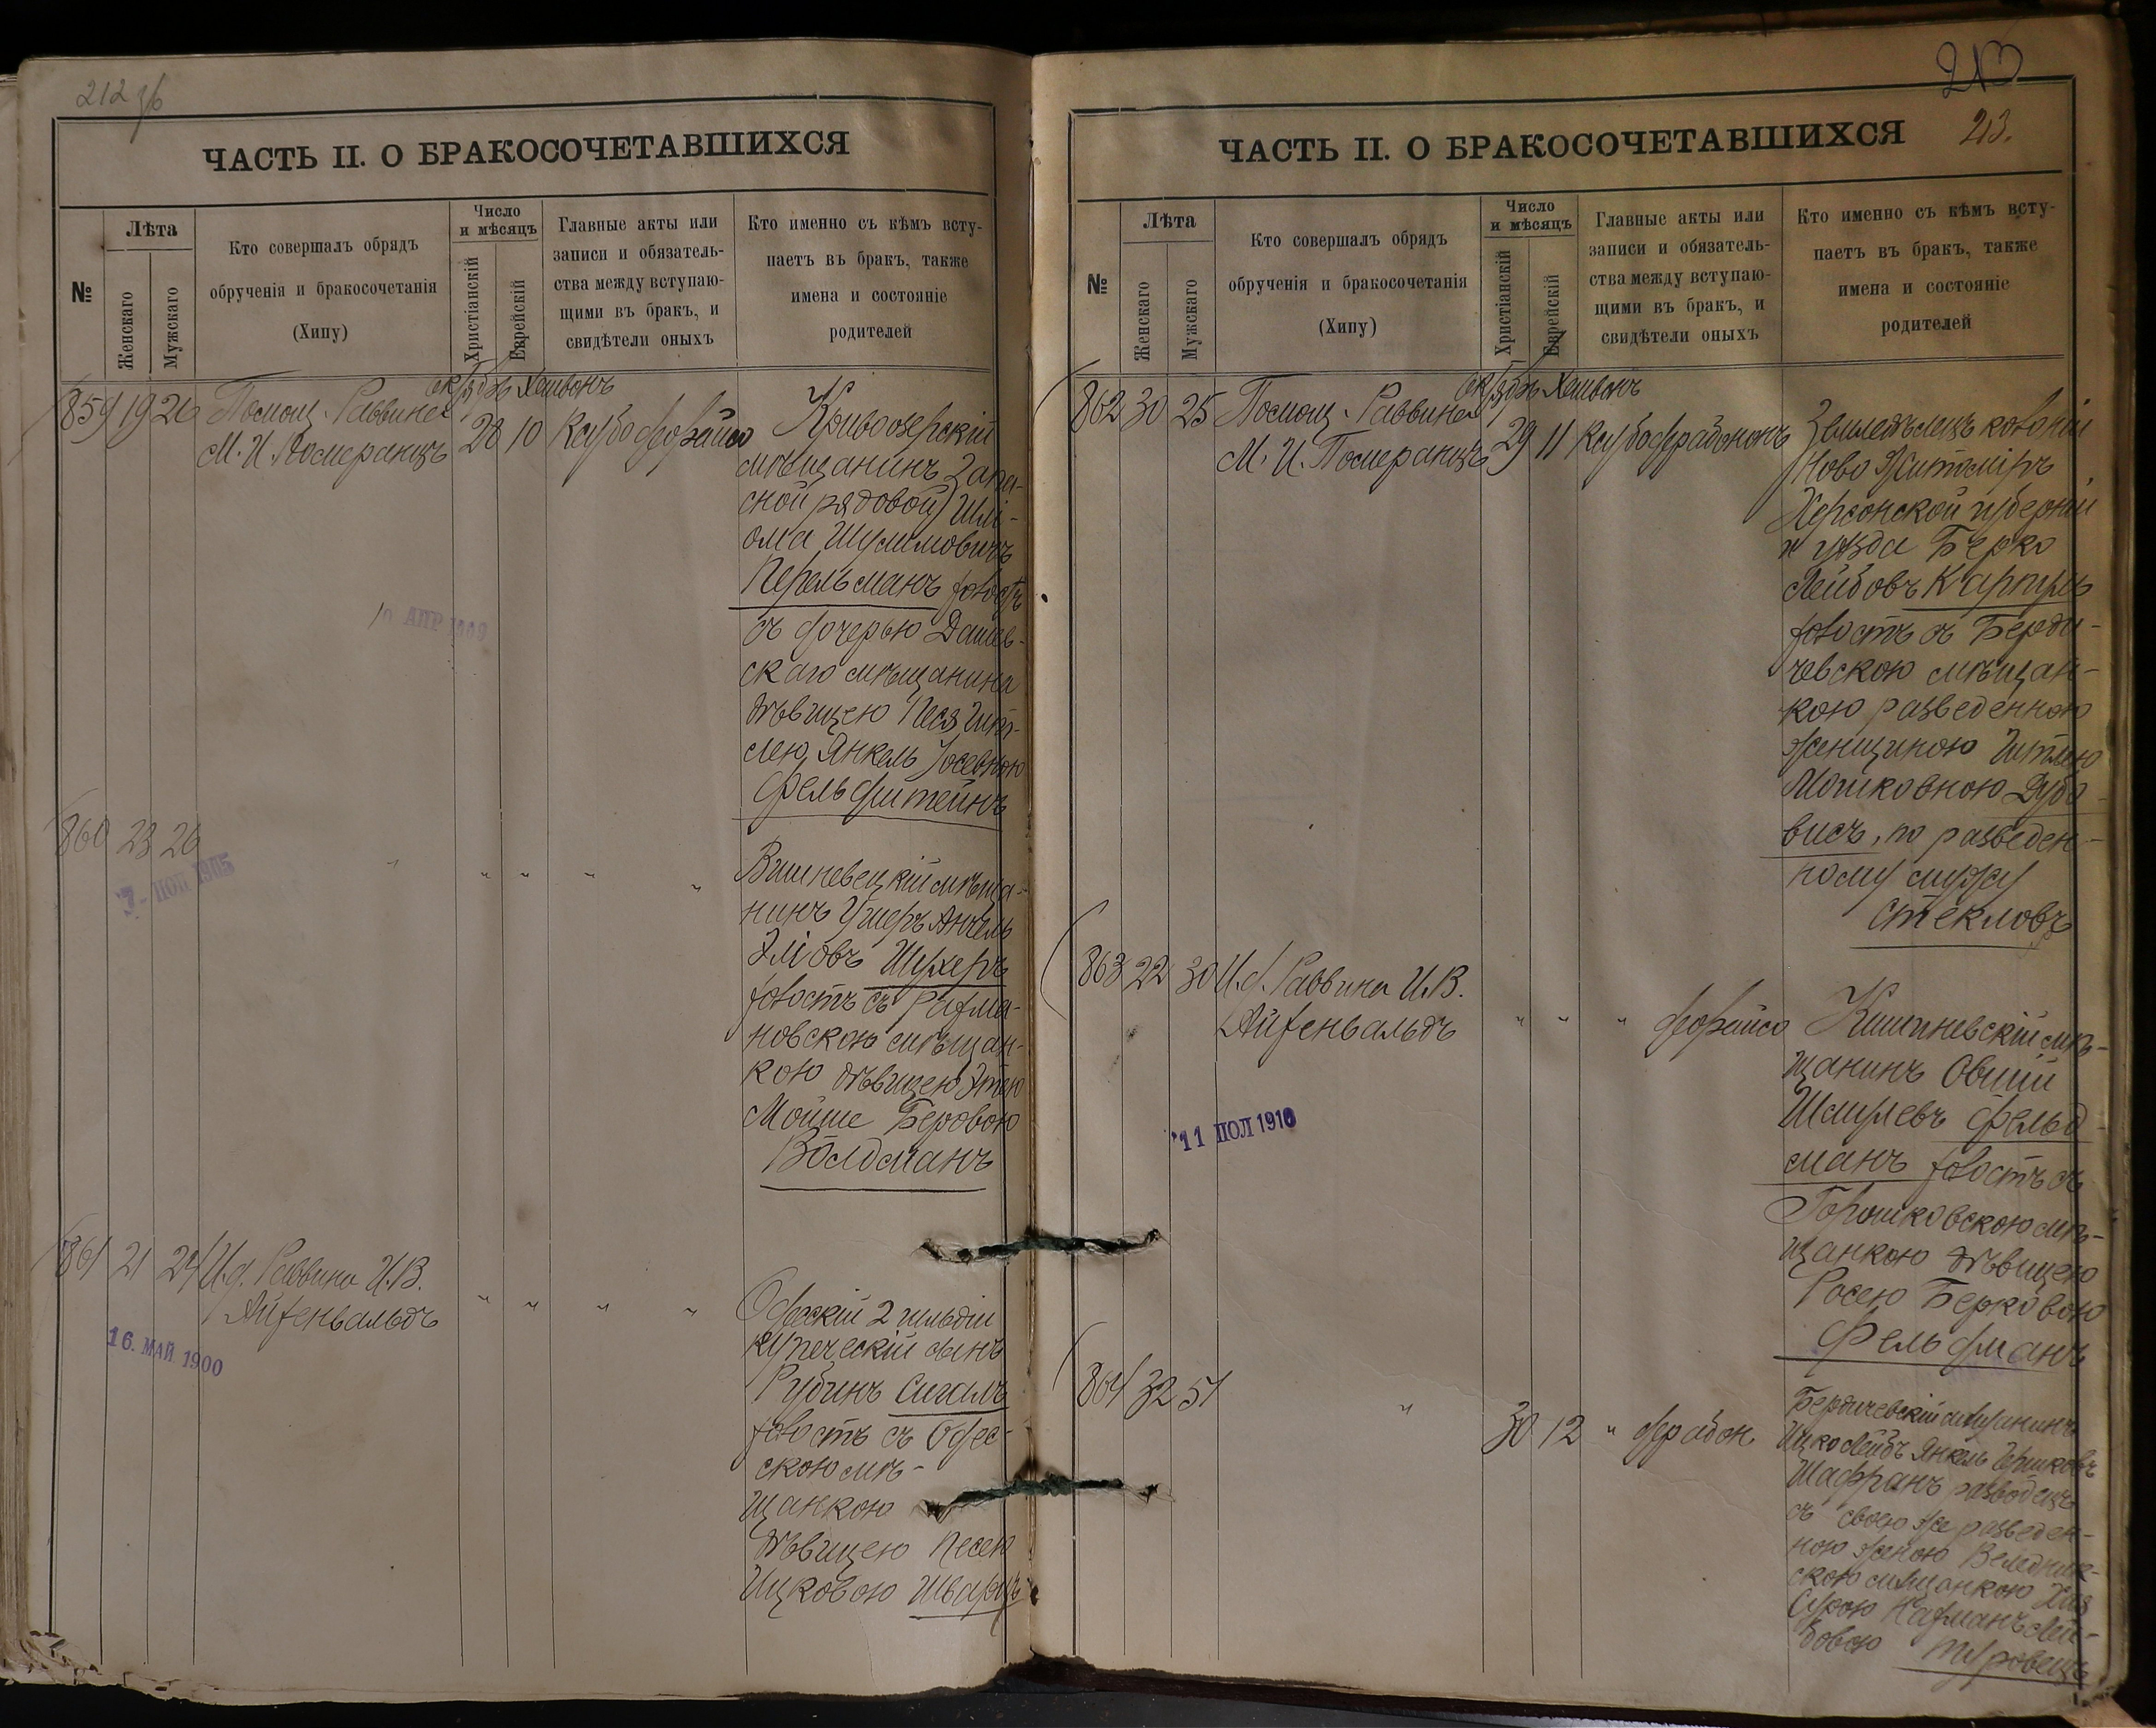 212 об
ЧАСТЬ II. О БРАКОСОЧЕТАВШИХСЯ
№
Лѣта
Женскаго
Мужскаго
Кто совершалъ обрядъ
обрученія и бракосочетанія
(Хипу)
Число
и мѣсяцъ
Христіанскій
Еврейскій
Главные акты или
записи и обязатель-
ства между вступаю-
щими въ бракъ, и
свидѣтели оныхъ
Кто именно съ кѣмъ всту-
паетъ въ бракъ, также
имена и состояніе
родителей
Хешвонъ
859 19 26 Помощ. Раввина
М. И. Померанцъ
28 10
Кривоозерскій
мѣщанинъ Запа-
сной рядовой Шлі-
ома Шулимовичъ
Перельманъ холостъ
съ дочерью Дашев-
скаго мѣщанина
дѣвицею Песя Гит-
лею Янкель Іосевною
Фельдштейнъ
10 АПР 1909
860 23 26 " " " " "
Вишневецкій мѣща-
нинъ Ушеръ Анчель
Эліовъ Шухеръ
холостъ съ Рахма-
новскою мѣщан-
кою дѣвицею Этею
Мойше Беровою
Волдманъ
1905
861 21 24 И.д. Раввина И.В.
Айзенвальдъ
" " " "
Одесскій 2 гильдіи
купеческій сынъ
Рубинъ Сигалъ
холостъ съ Одес-
скою мѣ-
щанкою
дѣвицею Песею
Ицковою Шварцъ
16. МАЙ 1900
213
213.
ЧАСТЬ II. О БРАКОСОЧЕТАВШИХСЯ
№
Лѣта
Женскаго
Мужскаго
Кто совершалъ обрядъ
обрученія и бракосочетанія
(Хипу)
Число
и мѣсяцъ
Христіанскій
Еврейскій
Главные акты или
записи и обязатель-
ства между вступаю-
щими въ бракъ, и
свидѣтели оныхъ
Кто именно съ кѣмъ всту-
паетъ въ бракъ, также
имена и состояніе
родителей
Хешвонъ
862 30 25 Помощ. Раввина
М. И. Померанцъ
29 11
Земледѣлецъ колоніи
Ново Житоміръ
Херсонской губерніи
и уѣзда Берко
Лейбовъ
холостъ съ Берди-
чевскою мѣщан-
кою разведенною
женщиною Гитлею
Мошковною Дубо-
висъ, по разведен-
ному мужу
Стекловъ
863 22 30 И.д. Раввина И.В.
Айзенвальдъ
" " "
Кишиневскій мѣ-
щанинъ Овшій
Шмулевъ Фельд-
манъ холостъ съ
Горошковскою мѣ-
щанкою дѣвицею
Росею Берковою
Фельдманъ
11 ІЮЛ 1910
864 32 51 "
30 12 "
Бердичевскій мѣщанинъ
Ицко Лейбъ Янкель Гершковъ
Шафранъ разводецъ
съ своею же разведен-
ною женою Веледник-
скою мѣщанкою Хая
Сурою Нахманъ Лей-
бовою Туровецъ